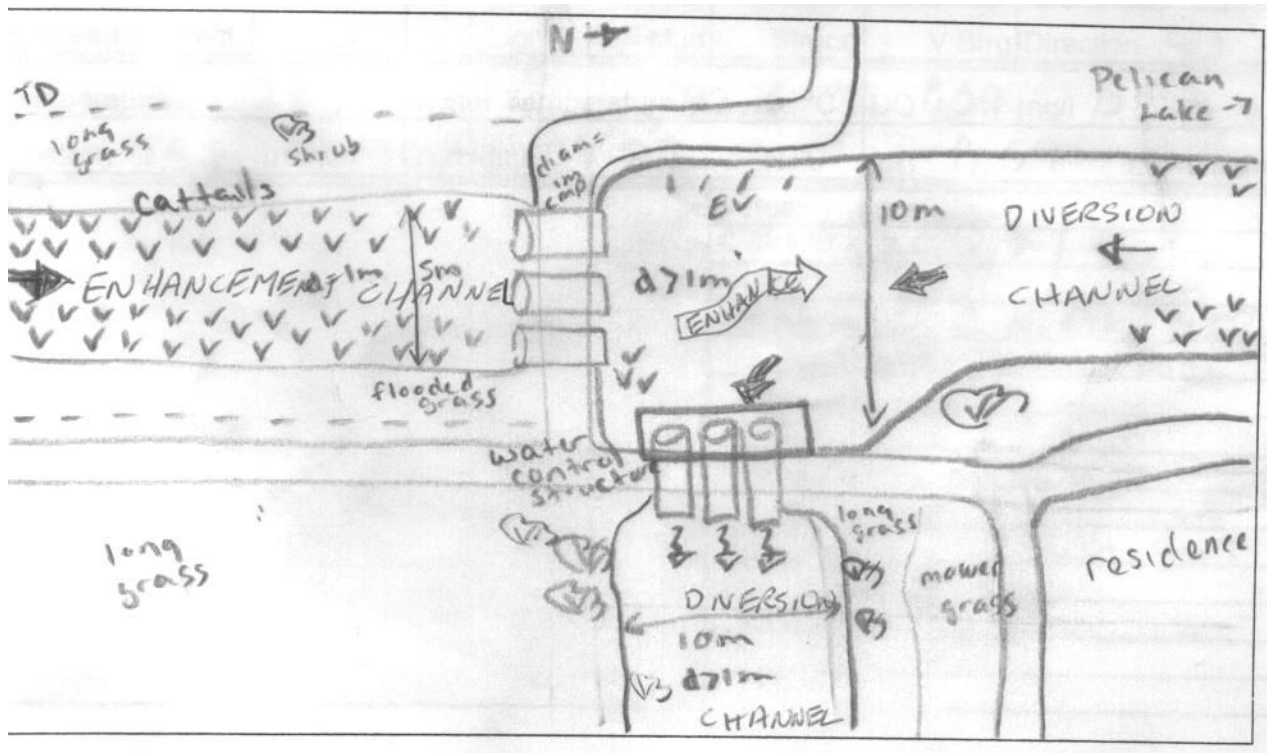 N →
Pelican
Lake →
TD
long
grass
shrub
diam=
1m
cmp
Cattails
EV
10m
DIVERSION
CHANNEL
ENHANCEMENT CHANNEL
5m
d>1m
ENHANCE
flooded
grass
water
control
structure
long
grass
long
grass
mowed
grass
residence
DIVERSION
10m
d>1m
CHANNEL